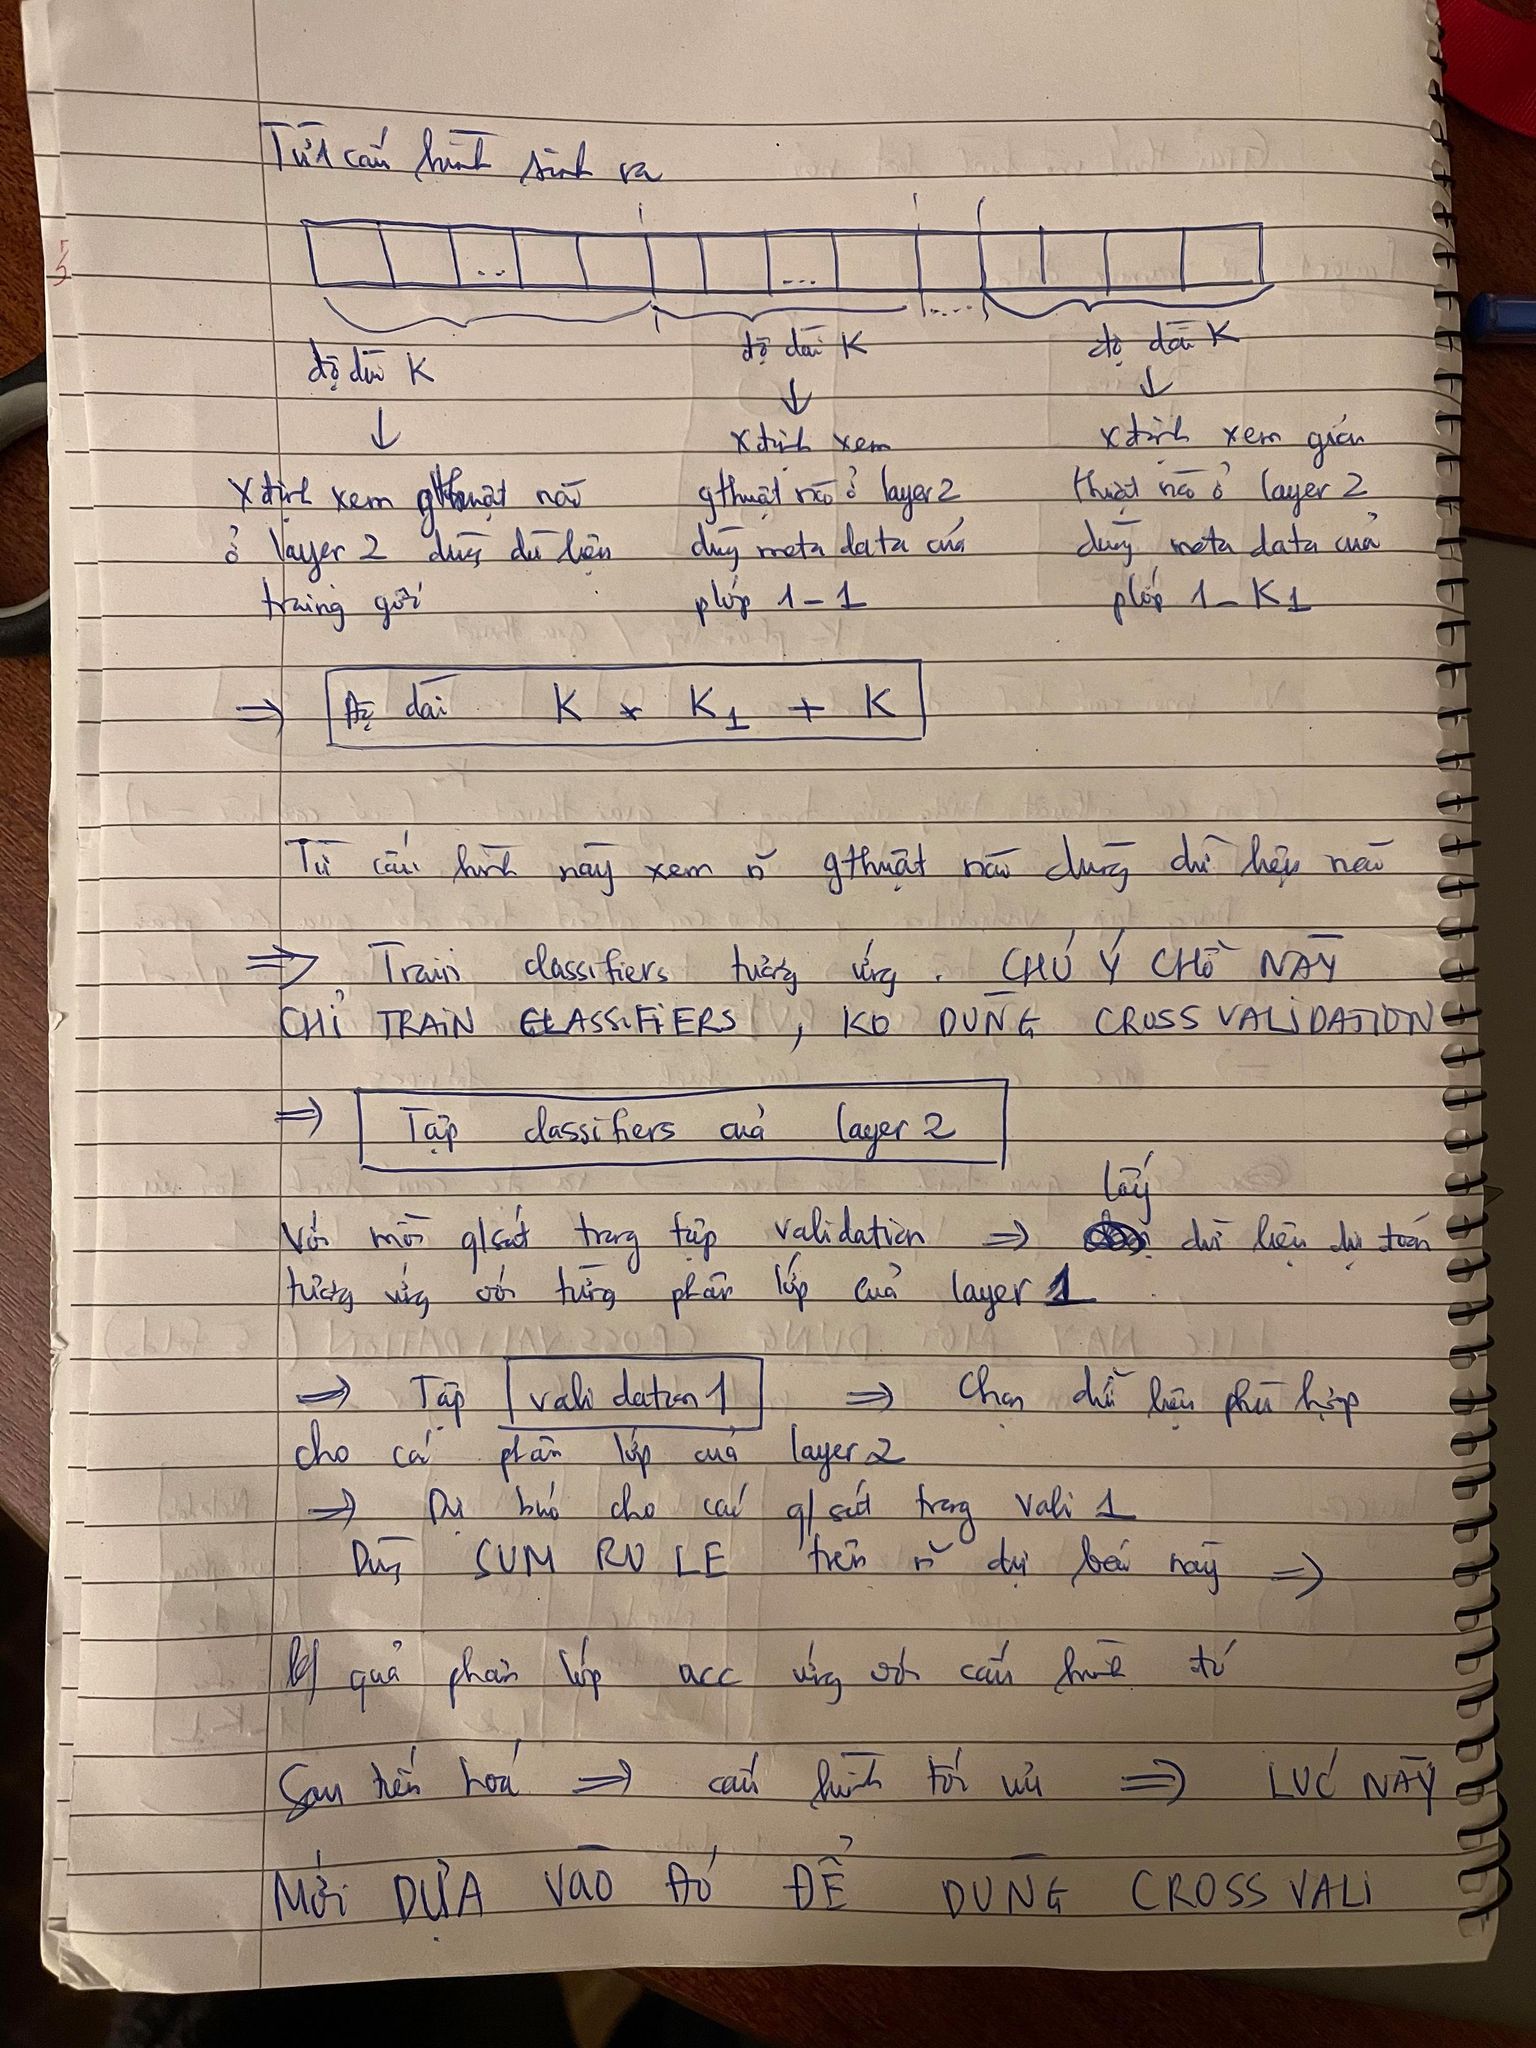 Từ 1 cấu hình sinh ra
... ... ....
độ dài K độ dài K độ dài K
xđịnh xem gthuật nào ở layer 2 dùng dữ liệu training gốc
xđịnh xem
gthuật nào ở layer 2
dùng meta data của
plớp 1-1
xđịnh xem giải
thuật nào ở layer 2
dùng meta data của
plớp 1-K1
⇒ độ dài K * K1 + K
Từ cấu hình này xem n~ gthuật nào dùng dữ liệu nào
⇒ Train classifiers tương ứng. CHÚ Ý CHỖ NÀY
CHỈ TRAIN CLASSIFIERS, KO DÙNG CROSS VALIDATION
⇒ Tập classifiers của layer 2
Với mỗi q/sát trong tập validation ⇒ lấy dữ liệu dự toán
tương ứng với từng phân lớp của layer 1
⇒ Tập validation 1 ⇒ Chọn dữ liệu phù hợp
cho các phân lớp của layer 2
⇒ Dự báo cho các q/sát trong vali 1
Dùng SUM RULE trên n~ dự báo này ⇒
k/quả phân lớp acc ứng với cấu hình đó
Sau tiến hoá ⇒ cấu hình tối ưu ⇒ LÚC NÀY
MỚI DỰA VÀO ĐÓ ĐỂ DÙNG CROSS VALI